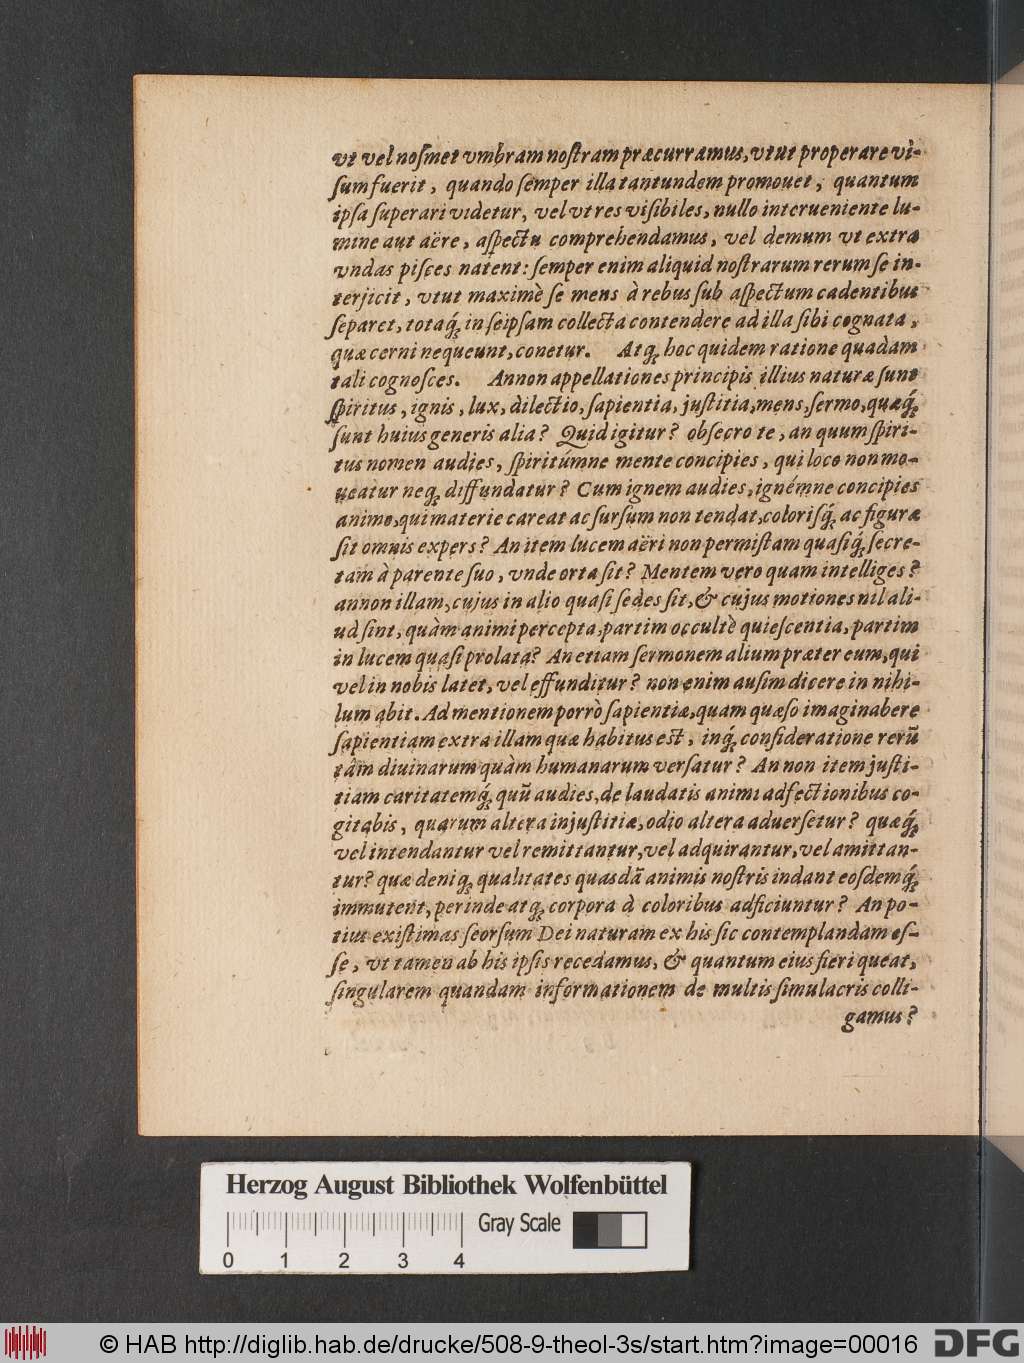 vt vel noſmet vmbram noſtram præcurramus, vtut properare vi-
ſum fuerit, quando ſemper illa tantundem promouet, quantum
ipſa ſuperari videtur, vel vt res viſibiles, nullo interueniente lu-
mine aut aëre, aſpectu comprehendamus, vel demum vt extra
vndas piſces natent: ſemper enim aliquid noſtrarum rerum ſe in-
terjicit, vtut maximè ſe mens à rebus ſub aſpectum cadentibus
ſeparet, totaq́; in ſeipſam collecta contendere ad illa ſibi cognata,
quæ cerni nequeunt, conetur. Atq; hoc quidem ratione quadam
tali cognoſces. Annon appellationes principis illius naturæ ſunt
ſpiritus, ignis, lux, dilectio, ſapientia, juſtitia, mens, ſermo, quæq́;
ſunt huius generis alia? Quid igitur? obſecro te, an quum ſpiri-
tus nomen audies, ſpiritúmne mente concipies, qui loco non mo-
ueatur neq; diffundatur? Cum ignem audies, ignémne concipies
animo, qui materie careat ac ſurſum non tendat, coloriſq́; ac figuræ
ſit omnis expers? An item lucem aëri non permiſtam quaſiq́; ſecre-
tam à parente ſuo, vnde orta ſit? Mentem vero quam intelliges?
annon illam, cujus in alio quaſi ſedes ſit, & cujus motiones nil ali-
ud ſint, quàm animi percepta, partim occultè quieſcentia, partim
in lucem quaſi prolata? An etiam ſermonem alium præter eum, qui
vel in nobis latet, vel effunditur? non enim auſim dicere in nihi-
lum abit. Ad mentionem porrò ſapientiæ, quam quæſo imaginabere
ſapientiam extra illam quæ habitus eſt, inq́; conſideratione rerū
tàm diuinarum quàm humanarum verſatur? An non item juſti-
tiam caritatemq́; quū audies, de laudatis animi adfectionibus co-
gitabis, quarum altera injuſtitiæ, odio altera aduerſetur? quæq́;
vel intendantur vel remittantur, vel adquirantur, vel amittan-
tur? quæ deniq; qualitates quasdā animis noſtris indant eoſdemq́;
immutent, perinde atq; corpora à coloribus adficiuntur? An po-
tius exiſtimas ſeorſum Dei naturam ex his ſic contemplandam eſ-
ſe, vt tamen ab his ipſis recedamus, & quantum eius fieri queat,
ſingularem quandam informationem de multis ſimulacris colli-
gamus?
Herzog August Bibliothek Wolfenbüttel
Gray Scale
0 1 2 3 4
© HAB http://diglib.hab.de/drucke/508-9-theol-3s/start.htm?image=00016
DFG